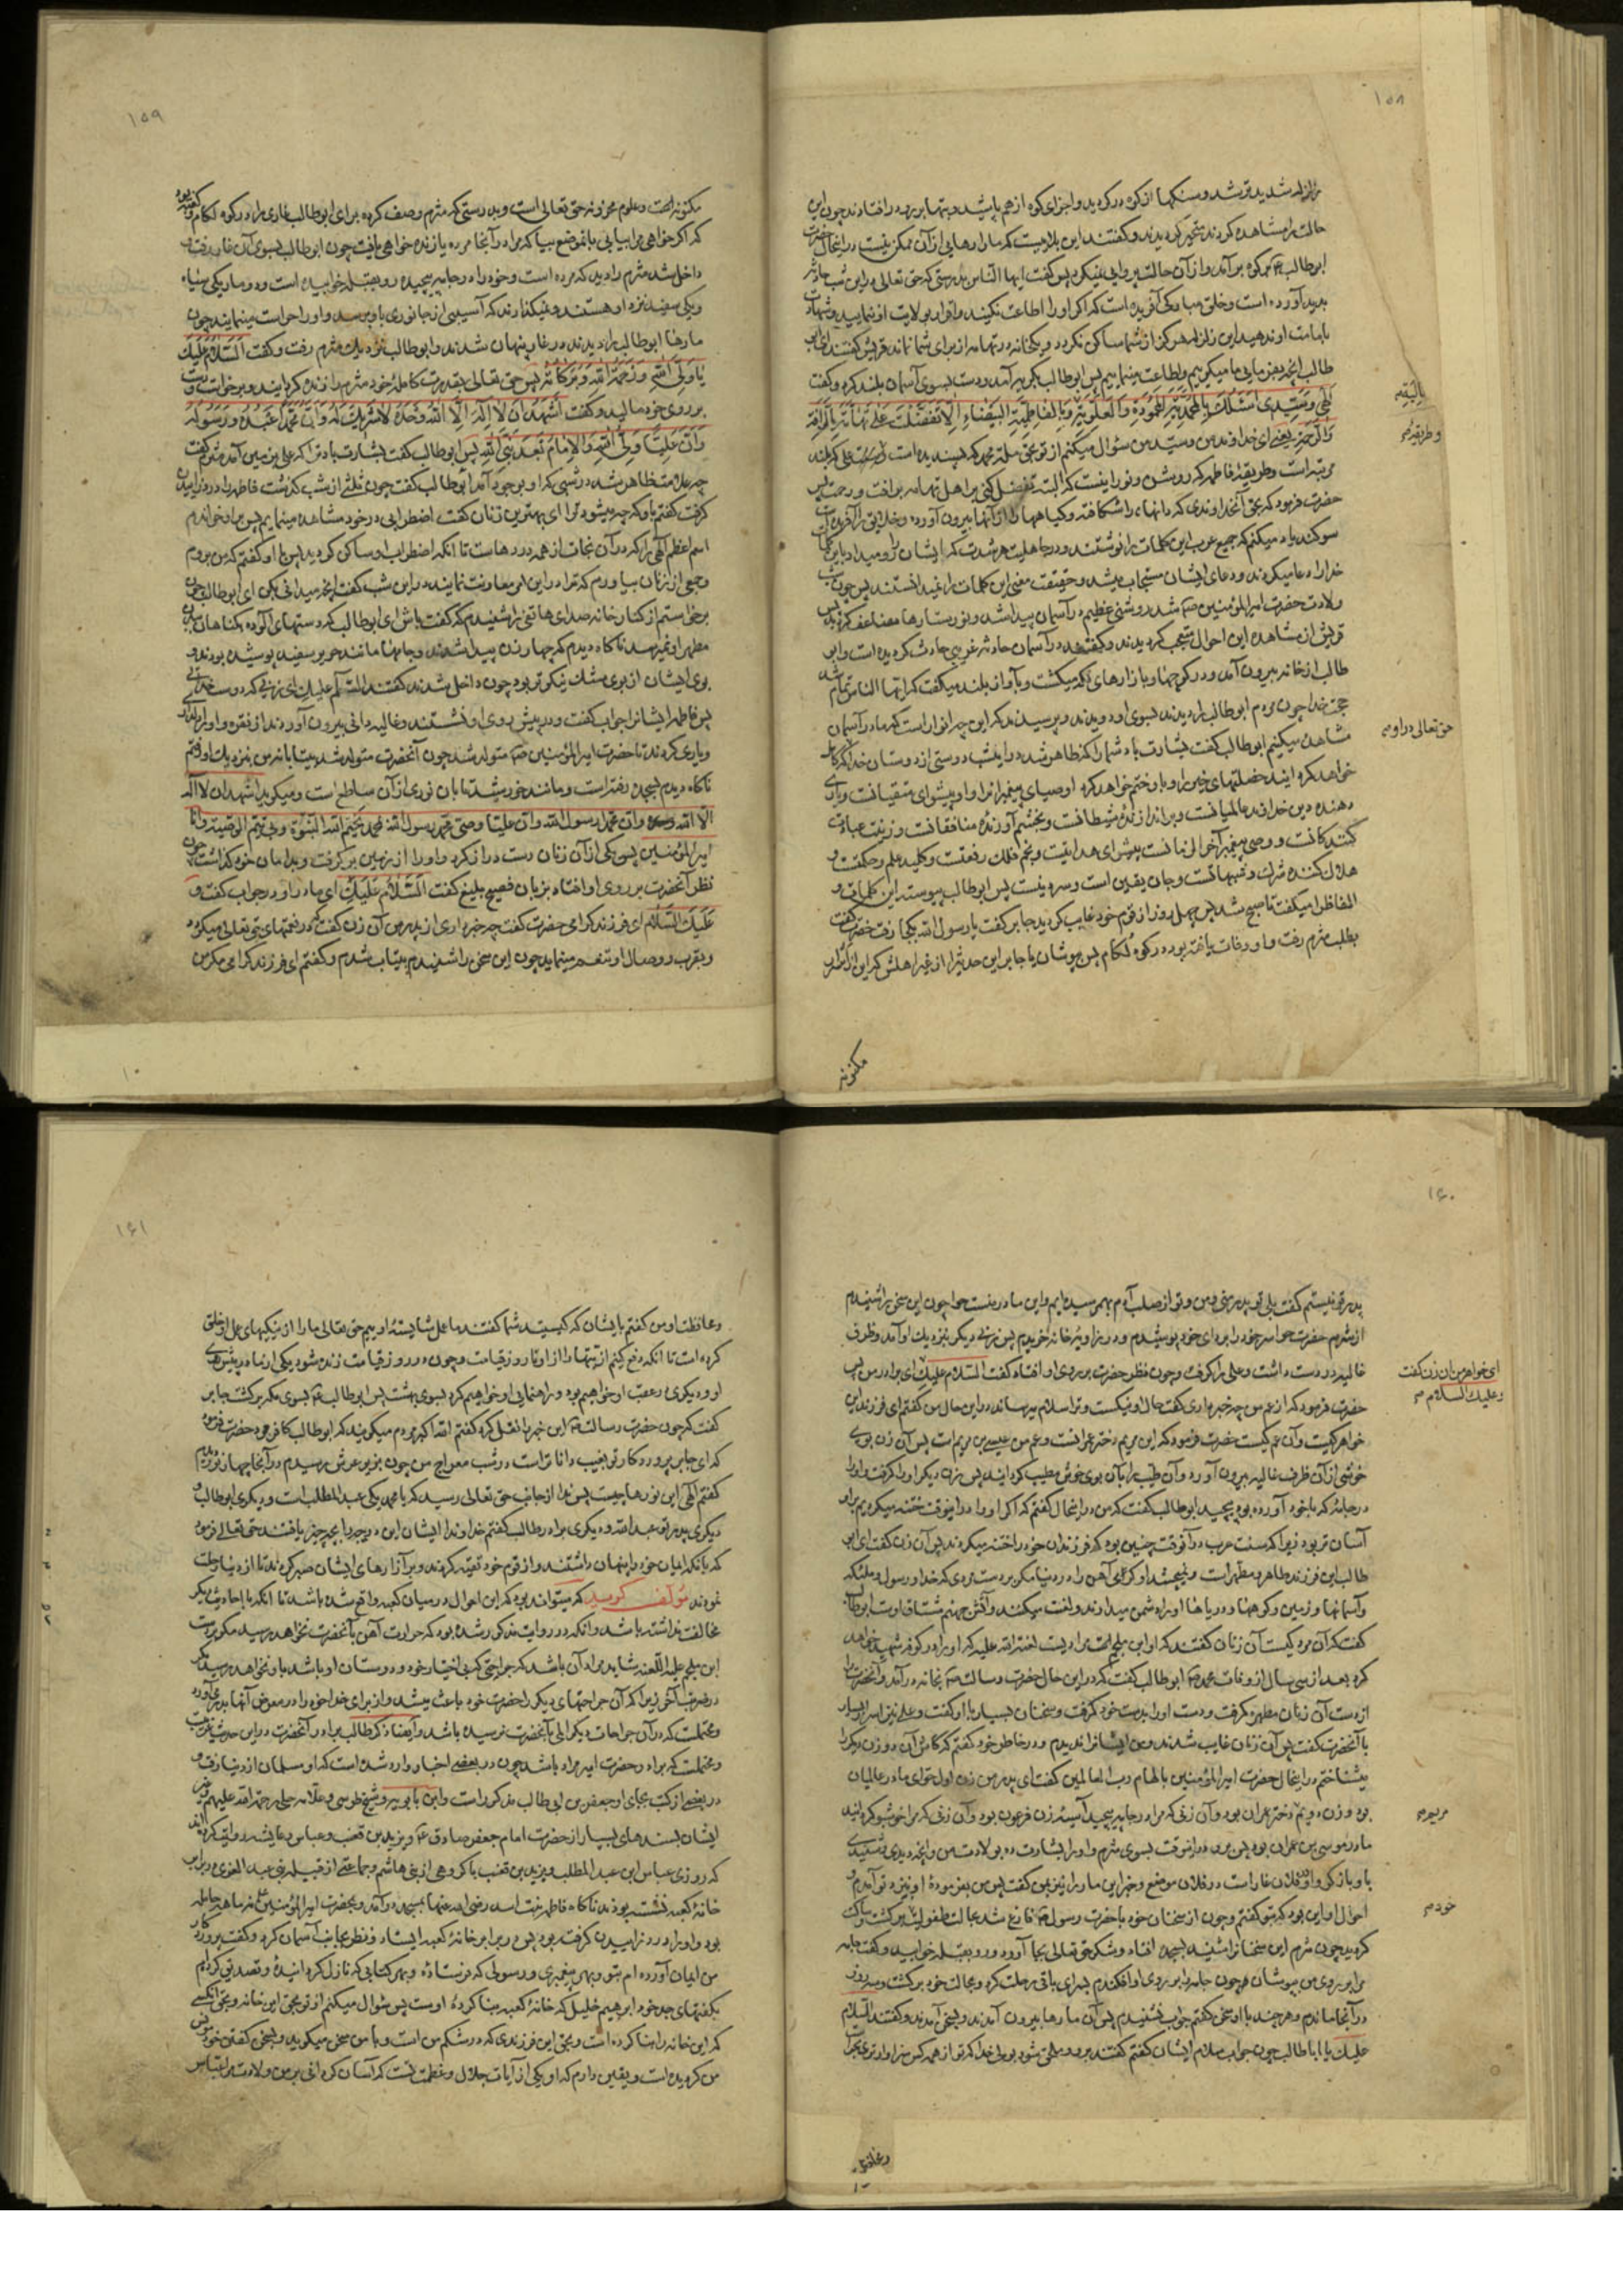 ۱۵۸
زلزله شدیدتر شد و سنکها از کوه در کردید و اجزای کوه از هم پاشید و بتها بر رو در افتادند چون این
حالت را مشاهده کردند متحیر کردیدند و گفتند این بلائیست که ما را رهایی از آن ممکن نیست در اینحال حضرت
ابوطالب بکوه بر آمد و از آن حالت پروایی نمیکرد پس گفت ایها الناس بدرستی که حق تعالی در این شب حادثه
پدید آورده است و خلقی مبارکی آفریده است که اگر او را اطاعت نکنید و اقرار بولایت او ننمایید و شهادت
بامامت او ندهید این زلزله هرکز از شما ساکن نکردد و یکخانه در تهامه از برای شما نماند قریش گفتند ای ابو
طالب آنچه میفرمایی ما میکوییم و اطاعت مینماییم پس ابوطالب بگریه در آمد و دست بسوی آسمان بلند کرد و گفت
الهی و سیدی اسئلک بالمحمدیة المحمودة و بالعلویة و بالفاطمیة البیضاء الا تفضلت علی تهامة بالرافة
بالعالیة
و الرحمة یعنی ای خداوند من و سید من سؤال میکنم از تو بحق ملت محمد که پسندیده است علی که بلند
و طریقه
مرتبه است و طریقه فاطمه که روشن و نورانیست که البته تفضل کنی بر اهل تهامه برافت و رحمت پس
حضرت فرمود که بحق آنخداوندی که دانها را شکافته و کیاهها را از آنها بیرون آورده و خلایق را آفریده است
سوکند یاد میکنم که جمیع عرب این کلمات را نوشتند و در جاهلیت هر شدت که ایشان را رو میداد باین کلمات
خدا را دعا میکردند و دعای ایشان مستجاب میشد و حقیقت معنی این کلمات را نمیدانستند پس چون شب
ولادت حضرت امیرالمؤمنین شد روشنی عظیم در آسمان پیدا شد و نور ستارها مضاعف کردید پس
قریش از مشاهده این احوال متعجب کردیدند و گفتند در آسمان حادثه غریبی حادث کردیده است و ابو
طالب از خانه بیرون آمد و در کوچها و بازارهای مکه میکشت و بآواز بلند میکفت که ایها الناس تمام شد
حجت خدا چون مردم ابوطالب را دیدند بسوی او دویدند و پرسیدند که این چه انوار است که ما در آسمان
مشاهده میکنیم ابوطالب گفت بشارت باد شما را که ظاهر شد در اینشب دوستی از دوستان خدا که کامل
حق تعالی در او
خواهد کرد ایند خصلتهای خیر را و باو ختم خواهد کرد اوصیای پیغمبران را و او پیشوای متقیانست و یاری
دهنده دین خداوند عالمیانست و براندازنده مشرکانست و بخشم آورنده منافقانست و زینت عبادت
کنندکانست و وصی پیغمبر آخر الزمانست پیشوای هدایتست و نجم فلک رفعتست و کلید علم و حکمتست و
هلاک کننده شرک و شبهاتست و جان یقین است و سر دینست پس ابوطالب پیوسته این کلمات و
الفاظ را میگفت تا صبح شد پس چهل روز از قوم خود غایب کردید جابر گفت یا رسول الله بکجا رفت حضرت گفت
بطلب مثرم رفت و او وفات یافته بود در کوه لکام پس بپوشان یا جابر این حدیث را از غیر اهلش که این از اسرار
مکنونه
۱۵۹
مکنونه است و علوم مخزونه حق تعالی است و بدرستی که مثرم وصف کرده برای ابوطالب غاری را در کوه لکام و گفته بود
که اگر خواهی مرا بیابی باین موضع بیا که مرا در آنجا مرده یا زنده خواهی یافت چون ابوطالب بسوی آن غار رفت و
داخل شد مثرم را دید که مرده است و خود را در جامه پیچیده رو بقبله خوابیده است و دو مار یکی سیاه
و یکی سفید نزد او هستند و نمیکذارند که آسیبی از جانوری باو برسد و او را حراست مینمایند چون
مارها ابوطالب را دیدند در غار پنهان شدند و ابوطالب نزدیک مثرم رفت و گفت السلام علیک
یا ولی الله و رحمة الله و برکاته پس حق تعالی بقدرت کامله خود مثرم را زنده کرد ایند و برخواست و دست
بر روی خود مالید و گفت اشهد ان لا اله الا الله وحده لا شریک له و ان محمدا عبده و رسوله
و ان علیا ولی الله و الامام بعد نبی الله پس ابوطالب گفت بشارت باد ترا که علی بزمین آمد مثرم گفت
چه علامت ظاهر شد در شبی که او بوجود آمد ابوطالب گفت چون ثلثی از شب کذشت فاطمه را درد زاییدن
کرفت گفتم باو که چه میشود ترا ای بهترین زنان گفت اضطرابی در خود مشاهده مینمایم پس بر او خواندم
اسم اعظم الهی را که در آن نجات از همه دردهاست تا آنکه اضطراب او ساکن کردید پس با او گفتم که من بروم
و جمعی از زنان بیاورم که ترا در این امر معاونت نمایند در این شب گفت آنچه میدانی بکن ای ابوطالب چون
برخواستم از کنار خانه صدای هاتفی را شنیدم که گفت باش ای ابوطالب که دستهای آلوده بکناهان بدن
مطهر او نمیرسد ناکاه دیدم که چهار زن پیدا شدند و جامها مانند حریر سفید پوشیده بودند و
بوی ایشان از بوی مشک نیکوتر بود چون داخل شدند گفتند السلام علیک ای زنی که دوست خدایی
پس فاطمه ایشانرا جواب گفت و در پیش روی او نشستند و غالیه دانی بیرون آوردند از نقره و او را
و یاری کردند تا حضرت امیرالمؤمنین متولد شد چون آنحضرت متولد شد بیتابانه من بنزدیک او رفتم
ناکاه دیدم بسجده رفته است و مانند خورشید تابان نوری از آن ساطع است و میکوید اشهد ان لا اله
الا الله وحده و ان محمد رسول الله و ان علیا وصی محمد رسول الله بمحمد یختم الله النبوة و بی تتم الوصیة و انا
امیرالمؤمنین پس یکی از آن زنان دست دراز کرد و او را از زمین بر کرفت و بدامان خود کذاشت چون
نظر آنحضرت بر روی او افتاد بزبان فصیح بلیغ گفت السلام علیک ای مادر او در جواب گفت و
علیک السلام ای فرزند کرامی حضرت گفت چه خبر داری از پدر من آن زن گفت که در نعمتهای حق تعالی میکردد
و بقرب و وصال او تنعم مینماید چون این سخن را شنیدم بیتاب شدم و گفتم ای فرزند کرامی مکر من
۱۶۰
پدر تو نیستم گفت بلی تو پدر منی و من و تو از صلب آدم بهم رسیده ایم و این مادر منست حوا چون این سخن را شنیدم
از شرم حضرت حوا سر خود را بردای خود پوشیدم و در زاویه خانه خزیدم پس زنی دیکر بنزدیک او آمد و ظرف
غالیه در دست داشت و علی را کرفت و چون نظر حضرت بر روی او افتاد گفت السلام علیک ای برادر من پس
ای خواهر من آن زن گفت
و علیک السلام
حضرت فرمود که از عم من چه خبر داری گفت حال او نیکست و ترا سلام میرساند در این حال من گفتم ای فرزند این
خواهر کیست و آن عم کیست حضرت فرمود که این مریم دختر عمرانست و عم من عیسی بن مریم است پس آن زن بوی
خوشی از آن ظرف غالیه بیرون آورد و آن طیب را بآن بوی خوش مطیب کرد ایند پس زن دیکر او را کرفت و او را
در جامه که با خود آورده بود پیچید ابوطالب گفت که من در اینحال گفتم که اگر او را در اینوقت ختنه میکردیم بر او
آسان تر بود زیرا که سنت عرب در آنوقت چنین بود که فرزندان خود را ختنه میکردند پس آن زن گفت ای ابو
طالب این فرزند طاهر و مطهر است و نمیچشد او کرمی آهن را در دنیا مکر بر دست مردی که خدا و رسول و ملئکه
و آسمانها و زمین و کوهها و دریاها او را دشمن میدارند و لعنت میکنند و آتش جهنم مشتاق اوست ابوطالب
گفت که آن مرد کیست آن زنان گفتند که او ابن ملجم است مرادیست لعنة الله علیه که او را در کوفه شهید خواهد
کرد بعد از سی سال از وفات محمد ابوطالب گفت که در این حال حضرت رسالت بخانه در آمد و آنحضرت را
از دست آن زنان مطهره کرفت و دست او را بدست خود کرفت و سخنان بسیار با او گفت و علی نیز اسرار بسیار
با آنحضرت گفت پس آن زنان غایب شدند و من ایشانرا ندیدم و در خاطر خود گفتم که کاش آن دو زن دیکر را
میشناختم در اینحال حضرت امیرالمؤمنین بالهام رب العالمین گفت ای پدر من زن اول حوای مادر عالمیان
بود و زن دویم دختر عمران بود و آن زنی که مرا در جامه پیچید آسیه زن فرعون بود و آن زنی که مرا خوشبو کرد ایند
مریم
مادر موسی بن عمران بود پس برو در اینوقت بسوی مثرم و او را بشارت ده بولادت من و آنچه دیدی و شنیدی
باو باز کو و او در فلان غار است در فلان موضع و خبر این ما را نیز بمن گفت پس من بفرموده او بنزد تو آمدم و
احوال او این بود که بتو گفتم و چون از سخنان خود با حضرت رسول فارغ شد بحالت طفولیت برکشت و ساکت
خود
کردید چون مثرم این سخنانرا شنید بسجده افتاد و شکر حق تعالی بجا آورد و رو بقبله خوابید و گفت جامه
مرا بر روی من بپوشان چون جامه را بر روی او افکندم بسرای باقی رحلت کرد و بحالت خود برکشت و سه روز
در آنجا ماندم و هر چند با او سخن گفتم جواب نشنیدم پس آن مارها بیرون آمدند و بسخن آمدند و گفتند السلام
علیک یا ابا طالب چون جواب سلام ایشان گفتم گفتند برو و ملحق شو بولی خدا که تو از همه کس سزاوارتری بحراست
و محافظت
۱۶۱
و محافظت او من گفتم بایشان که کیستید شما گفتند ما عمل شایسته اوییم حق تعالی ما را از نیکیهای عمل او خلق
کرده است تا آنکه دفع کنیم اذیتها را از او تا روز قیامت و چون در روز قیامت زنده شود یکی از ما در پیش روی
او و دیکری در عقب او خواهیم بود و راهنمایی او خواهیم کرد بسوی بهشت پس ابوطالب بسوی مکه برکشت جابر
گفت که چون حضرت رسالت این خبر را نقل کرد گفتم الله اکبر مردم میکویند که ابوطالب کافر مرد حضرت فرمود
که ای جابر پروردکار تو بغیب داناتر است در شب معراج من چون بزیر عرش رسیدم در آنجا چهار نور دیدم
گفتم الهی این نورها چیست پس ندا از جانب حق تعالی رسید که یا محمد یکی عبد المطلب است و دیکری ابوطالب و
دیکری پدر تو عبد الله و دیکری برادر طالب گفتم خداوندا ایشان این درجه را بچه چیز یافتند حق تعالی فرمود
که بآنکه ایمان خود را پنهان داشتند و از قوم خود تقیه کردند و بر آزارهای ایشان صبر کردند تا از دنیا رحلت
نمودند مؤلف گوید که میتواند بود که این احوال در میان کعبه واقع شده باشد تا آنکه با احادیث دیکر
مخالفت نداشته باشد و آنکه در روایت مذکور شده بود که حرارت آهن بآنحضرت نخواهد رسید مکر بدست
ابن ملجم علیه اللعنه شاید مراد آن باشد که جراحتی که بی اختیار خود و دوستان او باشد باو نخواهد رسید مکر
در ضربت آخر زیرا که آن جراحتهای دیکر را حضرت خود باعث میشد و از برای خدا خود را در معرض آنها بدر میآورد
و محتملست که در آن جراحات دیکر المی بآنحضرت نرسیده باشد و ایضا ذکر طالب برادر آنحضرت در این حدیث غریبست
و محتملست که برادر حضرت امیر مراد باشد چون در بعضی اخبار وارد شده است که او مسلمان از دنیا رفت و
در بعضی از کتب بجای او جعفر بن ابی طالب مذکور است و ابن بابویه و شیخ طوسی و علامه حلی رحمة الله علیهم و غیر
ایشان بسندهای بسیار از حضرت امام جعفر صادق و یزید بن قعنب و عباس و عایشه روایت کرده اند
که روزی عباس ابن عبد المطلب و یزید بن قعنب با کروهی از بنی هاشم و جماعتی از قبیله بنی عبد العزی در برابر
خانه کعبه نشسته بودند ناکاه فاطمه بنت اسد رضی الله عنها بمسجد در آمد و بحضرت امیرالمؤمنین نه ماهه حامله
بود و او را درد زاییدن کرفته بود پس در برابر خانه کعبه ایستاد و نظر بجانب آسمان کرد و گفت پروردکارا
من ایمان آورده ام بتو و بهر پیغمبری و رسولی که فرستاده و بهر کتابی که نازل کرد انیده و تصدیق کرده ام
بگفتهای جد خود ابرهیم خلیل که خانه کعبه بنا کرده اوست پس سؤال میکنم از تو بحق این خانه و بحق آنکسی
که این خانه را بنا کرده است و بحق این فرزندی که در شکم من است و با من سخن میکوید و بسخن گفتن خود مونس
من کردیده است و یقین دارم که او یکی از آیات جلال و عظمت تست که آسان کردانی بر من ولادت مرا عباس